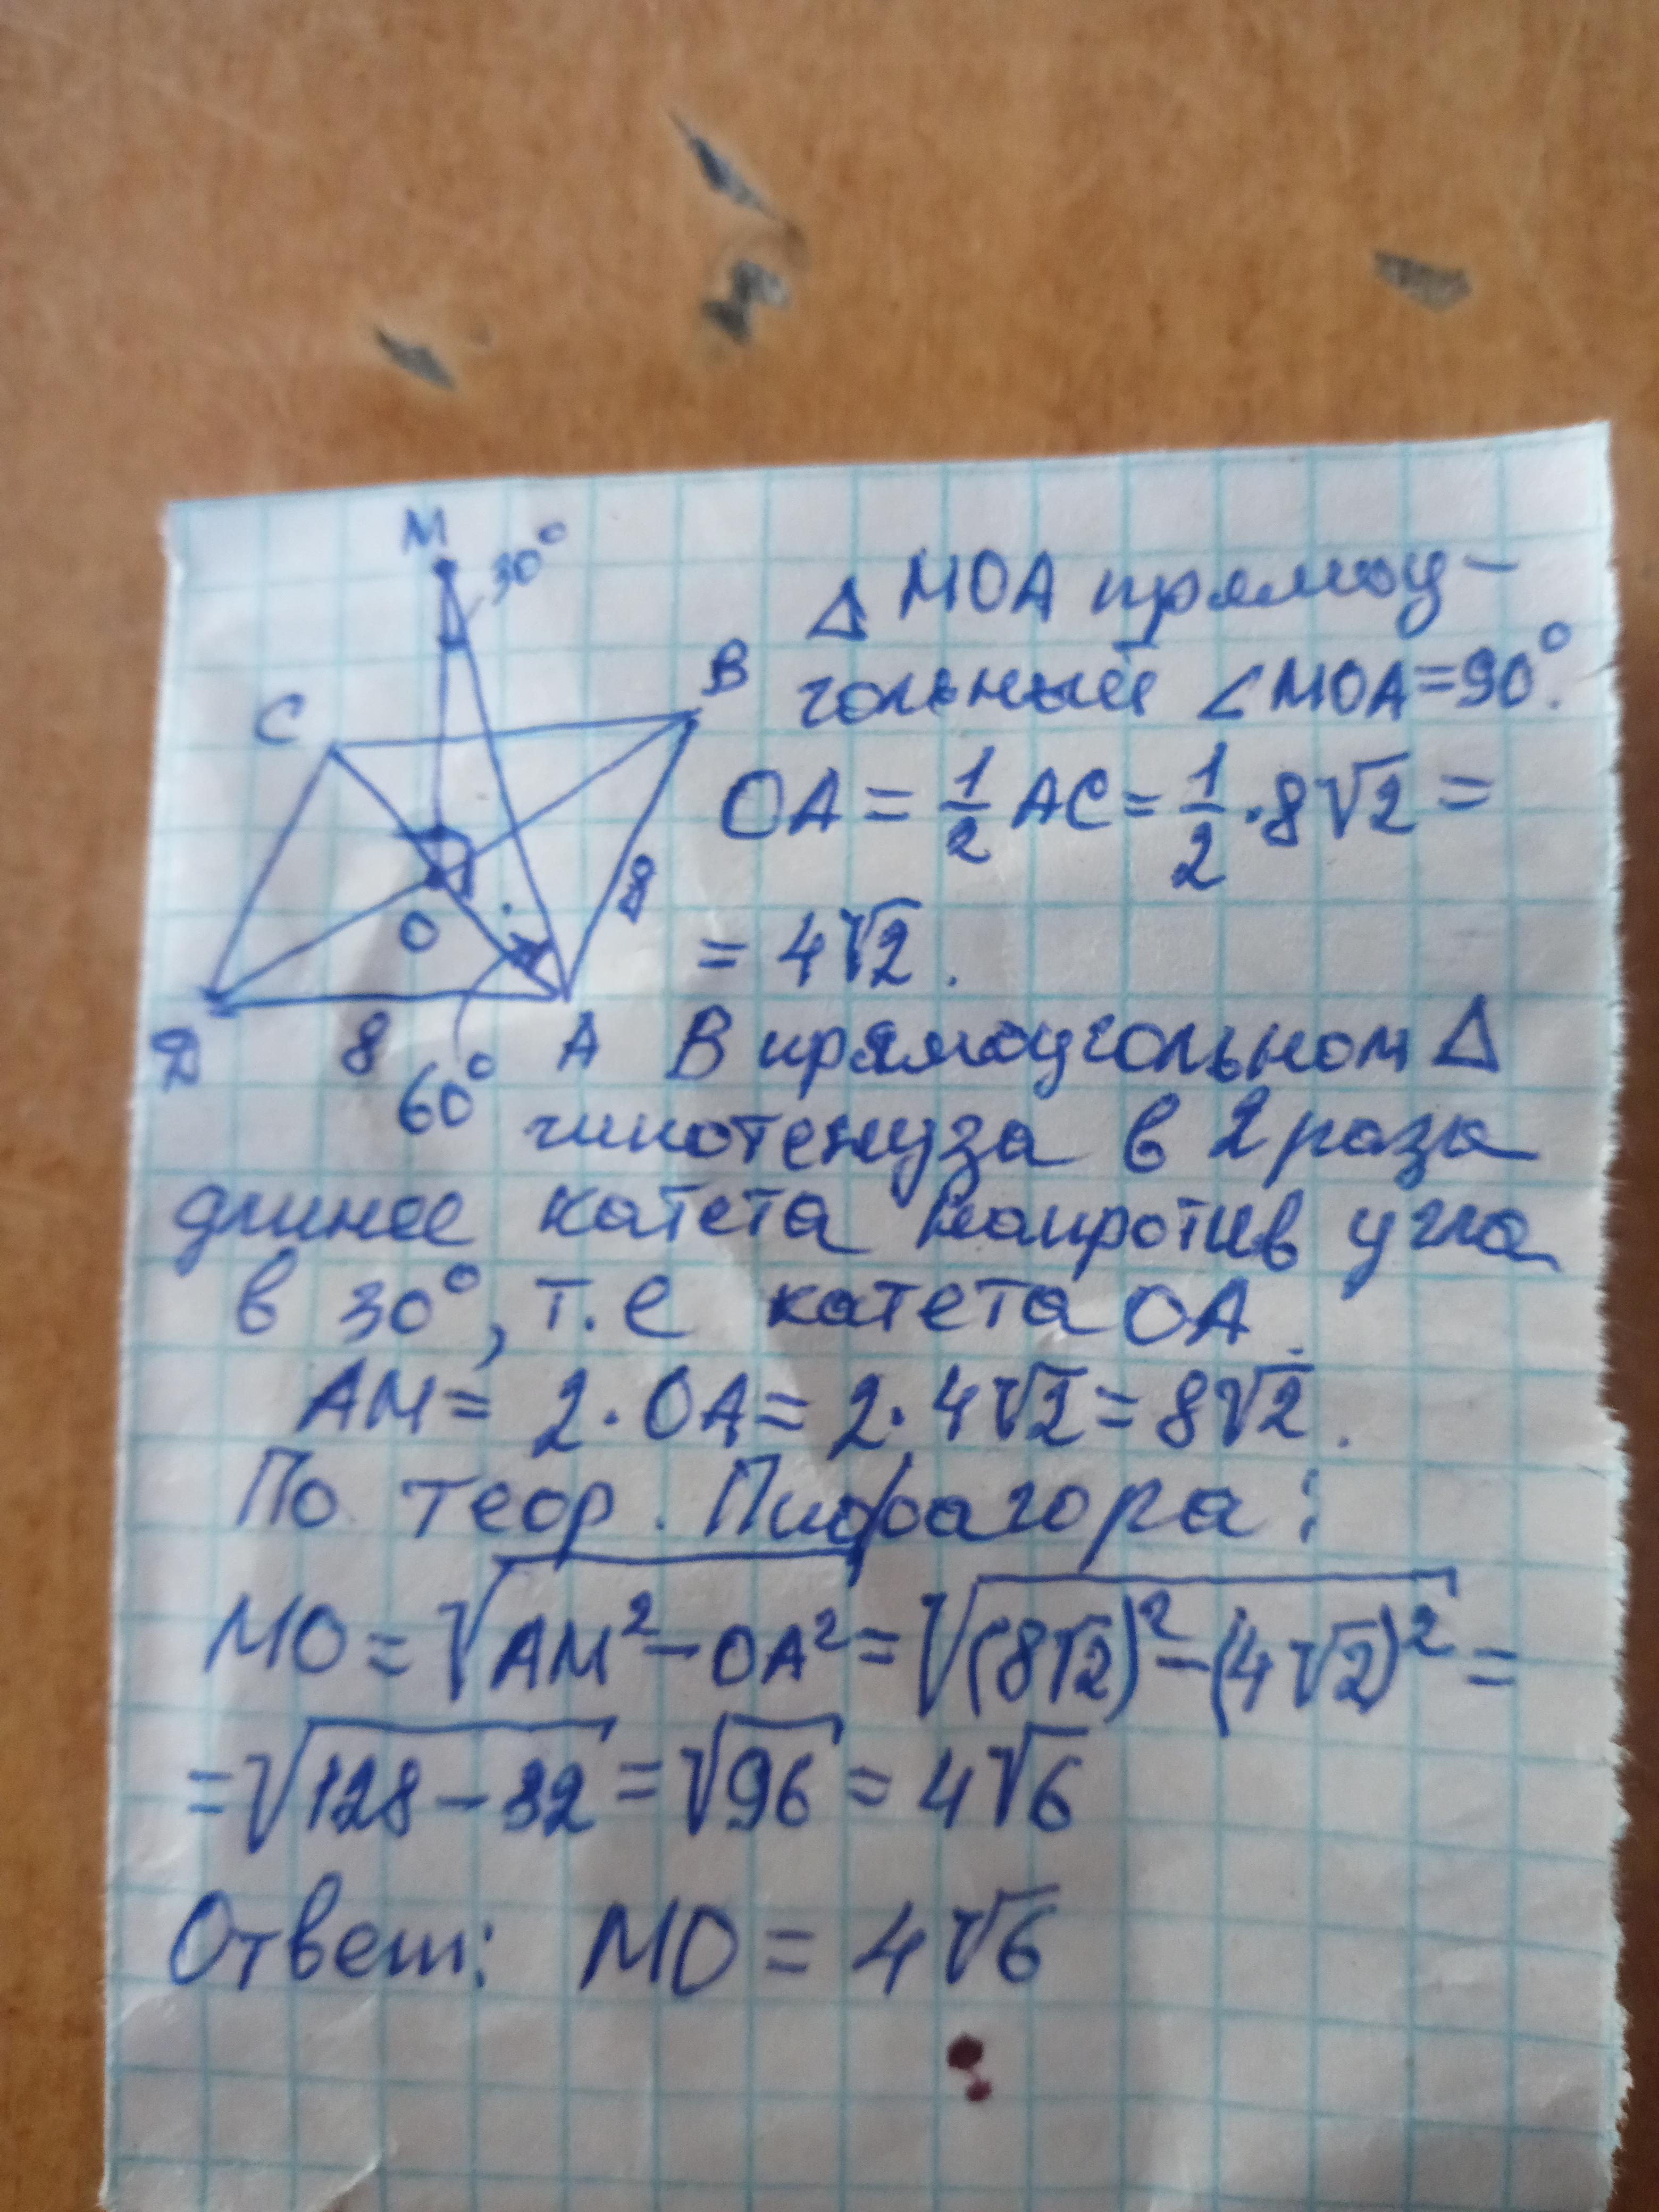 M
30°
Δ МОА прямоу-
гольный ∠MOA=90°.
C
B
OA = 1/2 AC = 1/2 · 8√2 =
8
O
= 4√2.
D
8
A
60°
В прямоугольном Δ
гипотенуза в 2 раза
длинее катета напротив угла
в 30°, т.е катета OA.
AM = 2 · OA = 2 · 4√2 = 8√2.
По теор. Пифагора:
MO = √(AM² - OA²) = √((8√2)² - (4√2)²) =
= √(128 - 32) = √96 = 4√6
Ответ: MO = 4√6